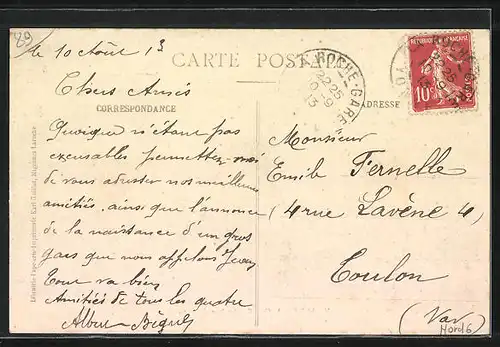 89
le 10 Août 13
CARTE POSTALE
Chers Amis
CORRESPONDANCE
ADRESSE
Quoique n'étant pas
excusables permettez-moi
de vous adresser nos meilleures
amitiés, ainsi que l'annonce
de la naissance d'un gros
gars que nous appelons Jean
Tout va bien
Amitiés de tous les quatre
Albert
Monsieur
Emile Fernelle
(4 rue Lavène 4)
Toulon
(Var)
ROCHE-GARE
22 25
10 - 9
13
REPUBLIQUE FRANÇAISE
10c